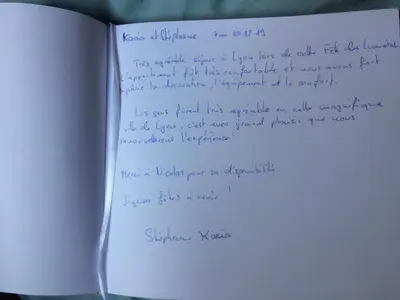 Karia et Stéphane 7 au 10.12.19
Très agréable séjour à Lyon lors de cette Fête des Lumières
L'appartement fut très confortable et nous avons fort
la décoration, l'équipement et le confort.
Les gens furent très agréable en cette magnifique
ville de Lyon, c'est avec grand plaisir que nous
l'expérience!
Merci à Nicolas pour sa disponibilité
fêtes à venir!
Stéphane Karia